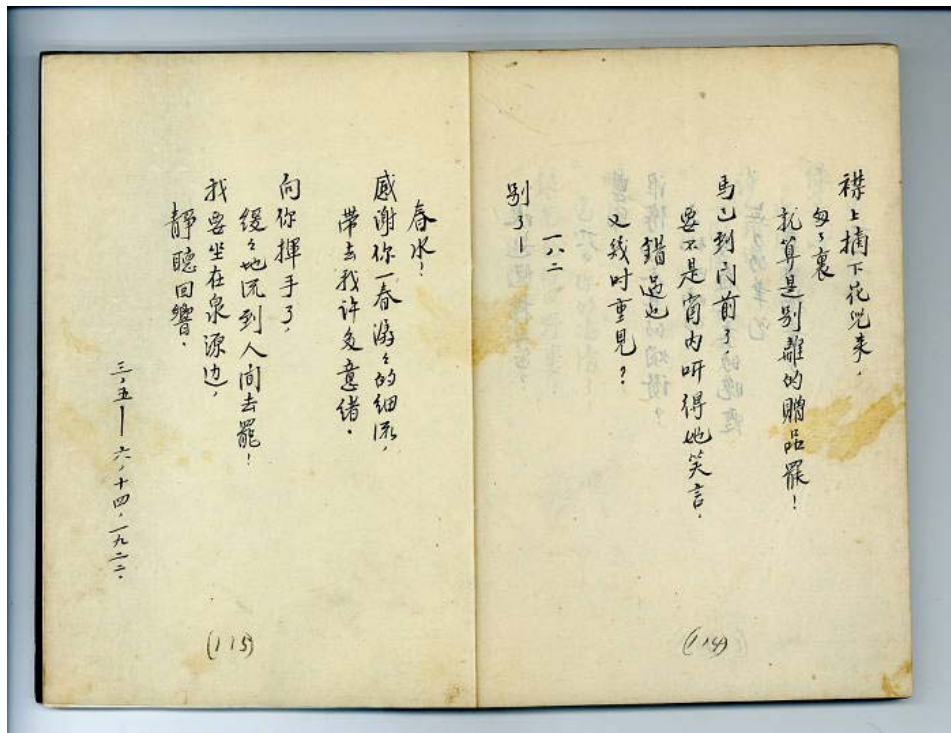 襟上摘下花兒来，
匆々裏
就算是别離的贈品罷！
馬已到门前了
要不是窗内听得她笑言，
錯過也
又幾时重見？
一八二
别了！
(114)
春水！
感谢你一春潺々的细流，
带去我许多意緒。
向你揮手了，
緩々地流到人间去罷！
我要坐在泉源边，
靜聽回響。
三，五—六，十四，一九二二。
(115)